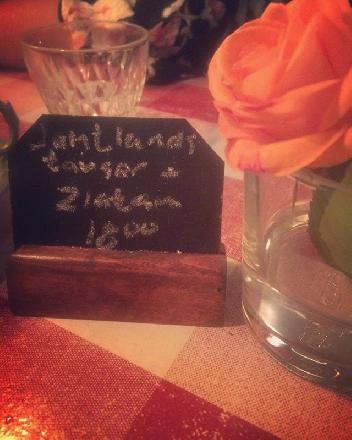 Jämtlands
tavgar +
Zlatan
18:00